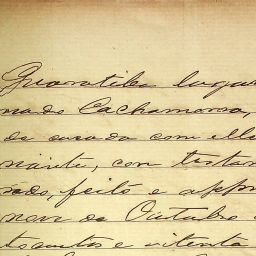 Guaratiba lugar
nado Cachamorra,
do casado com ella
niante, con testam
rado, feito e appro
nove de Outubro
tocentos e oitenta